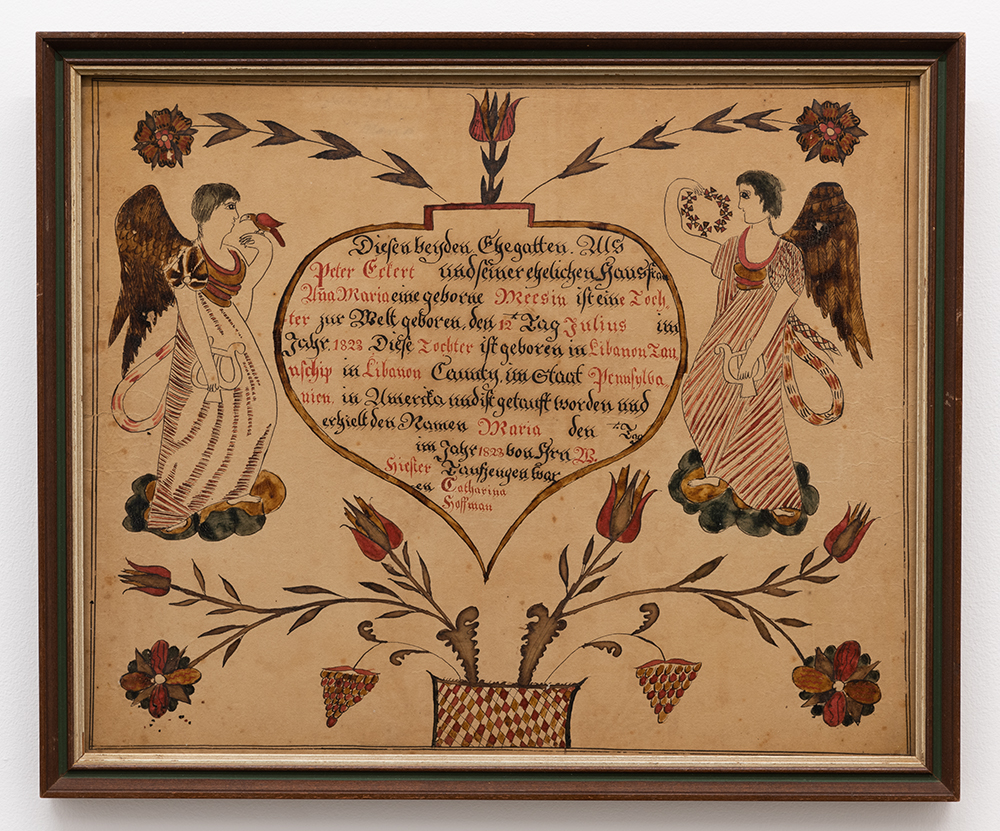 Diesen beyden Ehegatten. Als
Peter Eckert und seiner ehelichen Hausfrau
Aña Maria eine geborne Meesin ist eine Toch,
ter zur Welt geboren, den 12t Tag Julius im
Jahr 1823 Diese Tochter ist geboren in Libanon Tau
nschip in Libanon Caunty, im Staat Pennsylva
nien, in America und ist getauft worden und
erhielt den Namen Maria den t Tag
im Jahr 1823 von Hrn W.
Hiester Taufzeugen war
en Catharina
Hoffman